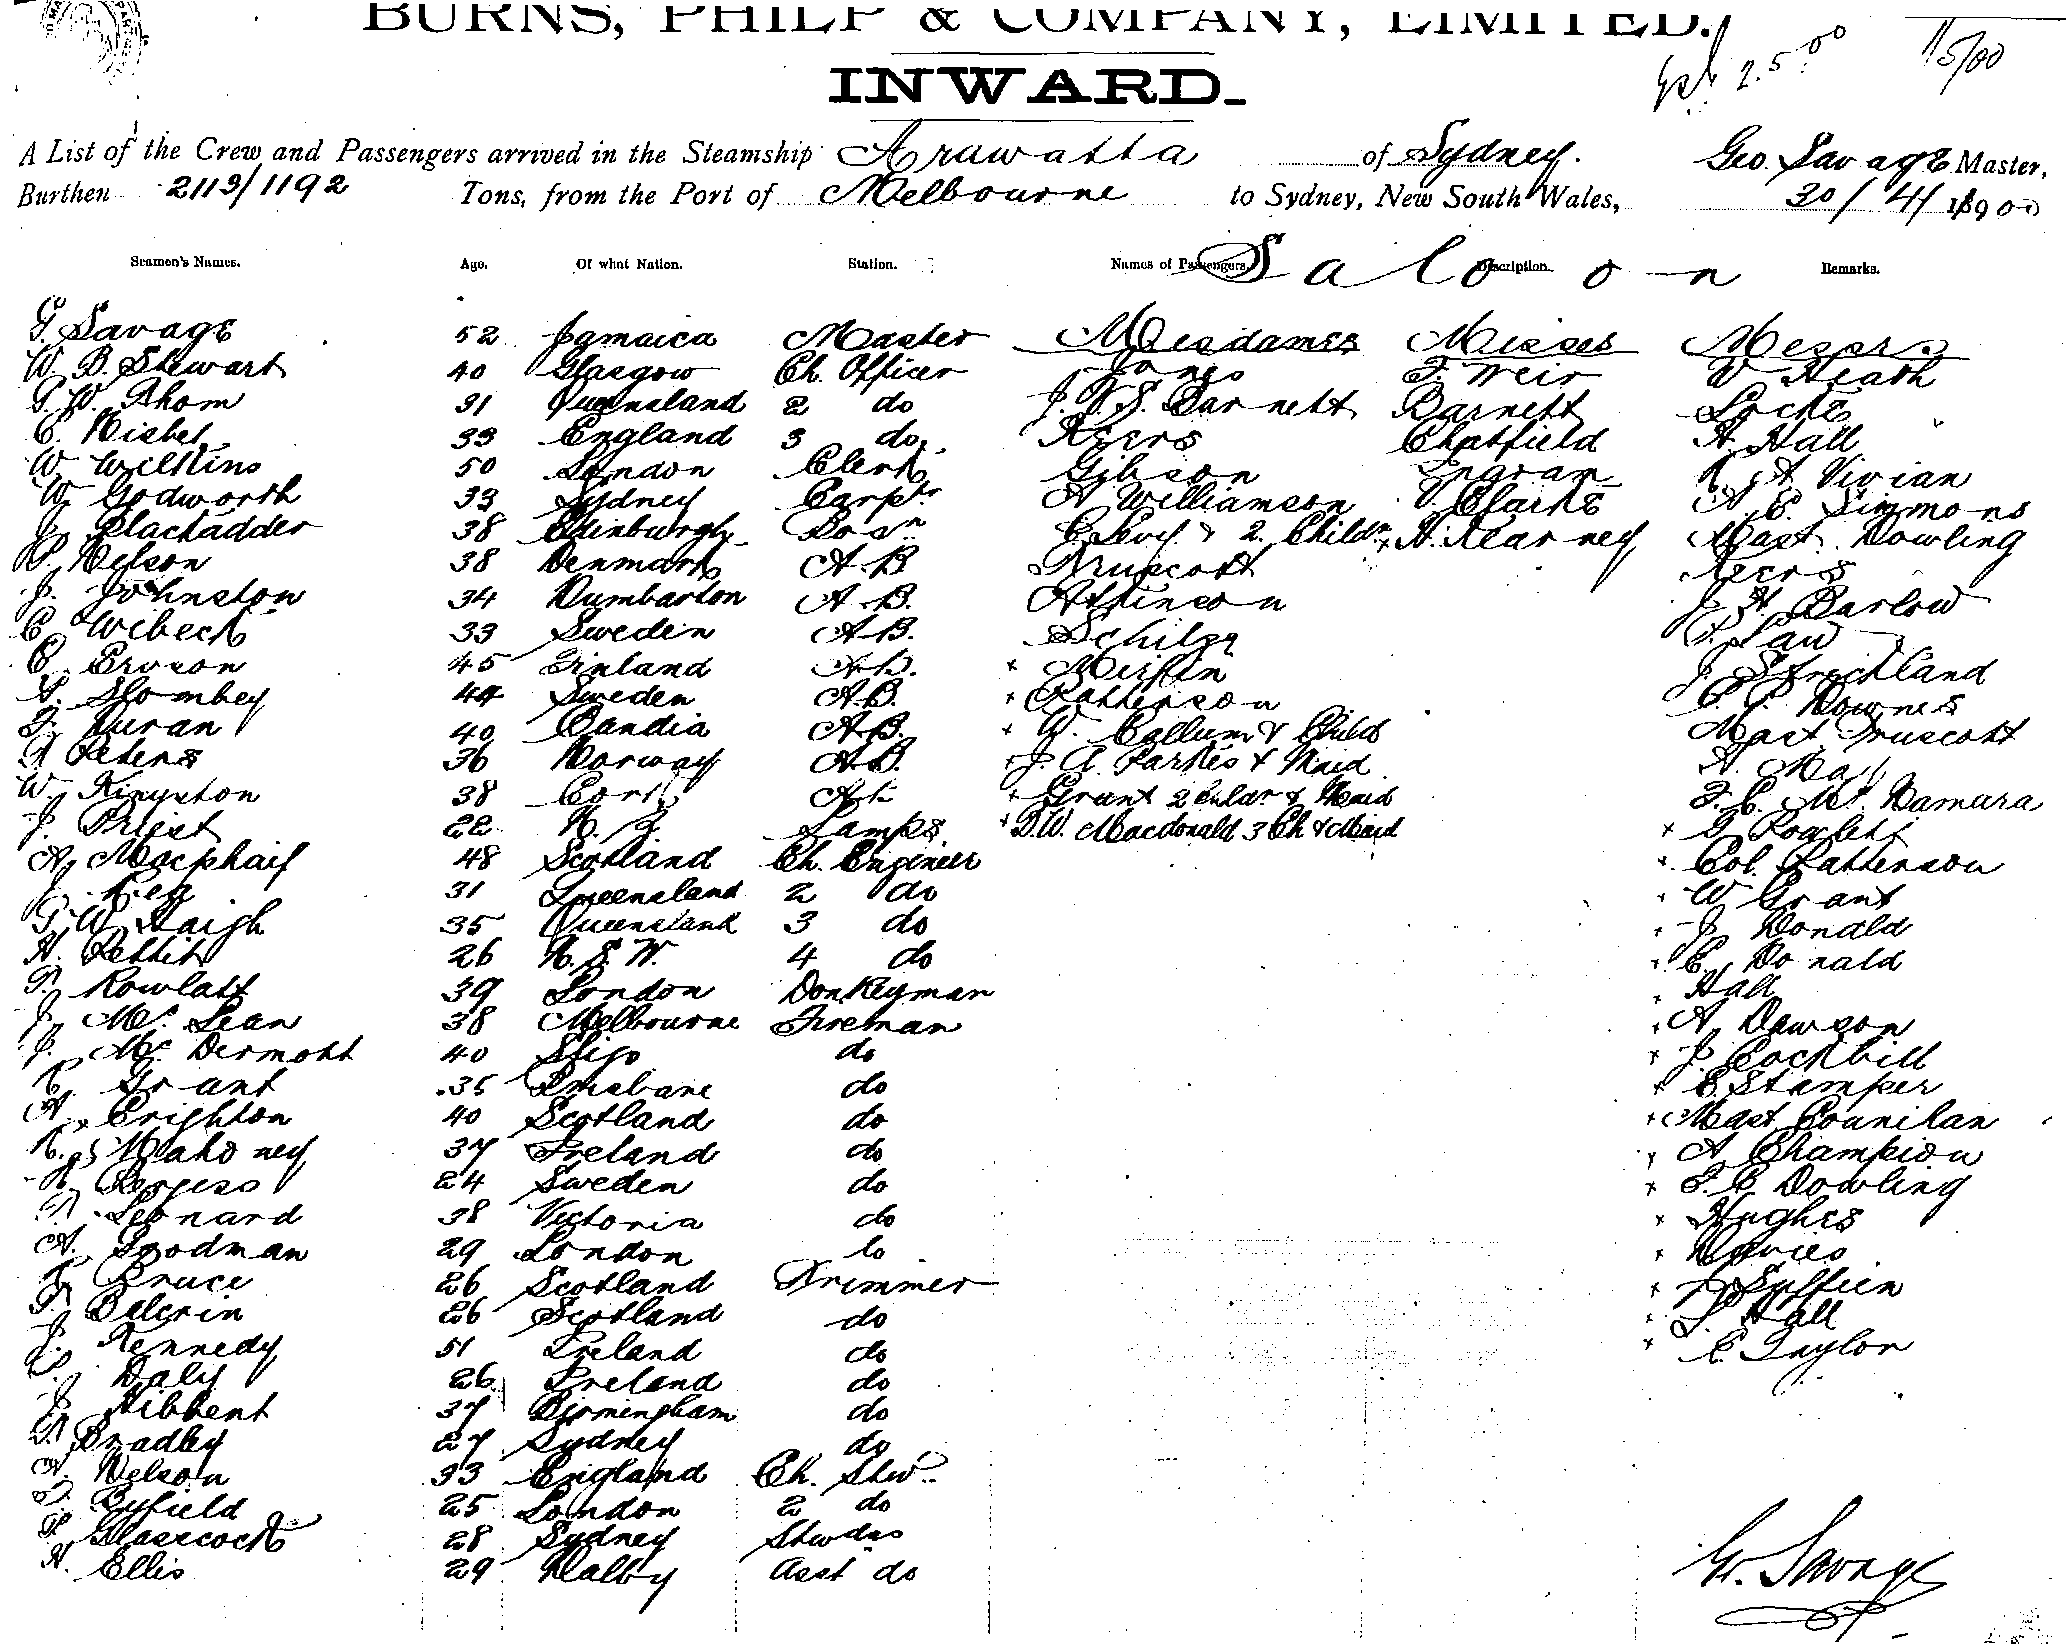 BURNS, PHILP & COMPANY, LIMITED.
INWARD.
2.5.00 1/5/00
A List of the Crew and Passengers arrived in the Steamship Arawatta of Sydney. Geo. Savage Master,
Burthen 2113/1192 Tons, from the Port of Melbourne to Sydney, New South Wales, 30/4/1900
Seamen's Names. Age. Of what Nation. Station. Names of Passengers. Description. Remarks.
Saloon
G. Savage 52 Jamaica Master Mesdames Misses Messrs
W. B. Stewart 40 Glasgow Ch. Officer Jones F. Weir W Heath
G. W. Thom 31 Queensland 2 do J. T. S. Barnett Barnett Locke
C. Nisbet 33 England 3 do. Keers Chatfield H. Hall
W Wilkins 50 London Clerk Gibson Ingram A Vivian
W. Godworth 33 Sydney Carptr A Williamson Clarke A. E. Simmons
J. Blackadder 38 Edinburgh Bosn C. Levy & 2. Childn x H. Kearney Mast. Dowling
P. Nelson 38 Denmark A B Truscott Keers
J. Johnston 34 Dumbarton A. B. Atkinson J. H. Barlow
C. Wibeck 33 Sweden A.B. Law
C. Ericson 45 Finland A.B. x Mirfin J Strickland
A. Slombey 44 Sweden A.B. x Patterson Downes
F. Duran 40 Candia A.B. x W. Callum & Child Mast Truscott
P. Peters 36 Norway A.B. x J. A. Parkes & Maid A. May
W. Kingston 38 Cork A.B. x Grant 2 Chldr & Maid F. C. Mc. Namara
J. Priest 22 N. Z. Lamps x D.W. Macdonald 3 Ch & Maid x Rowlett
A. Macphail 48 Scotland Ch. Engineer x Col. Patterson
J. Key 31 Queensland 2 do x W Grant
G. W. Haigh 35 Queensland 3 do x J. Donald
H. Pettit 26 N. S. W. 4 do x C. Donald
T. Rowlatt 39 London Donkeyman x Hall
J. Mc. Lean 38 Melbourne Fireman x A Dawson
J. Mc. Dermott 40 Sligo do x J. Cockbill
C. Grant 35 Brisbane do x E Stamper
A. Crighton 40 Scotland do x Mast Counihan
Mahoney 37 Ireland do x A Champion
Borgess 24 Sweden do x F. C Dowling
Leonard 38 Victoria do x Hughes
A. Goodman 29 London do x Davies
Bruce 26 Scotland Trimmer x
26 Scotland do x Hall
J. Kennedy 51 Ireland do x C. Taylor
Daly 26 Ireland do
J. Hibbent 37 Birmingham do
Bradley 27 Sydney do
Nelson 33 England Ch. Stwd.
Byfield 25 London 2 do
Glasscock 28 Sydney Stwdss
H. Ellis 29 Dalby Asst do
G. Savage